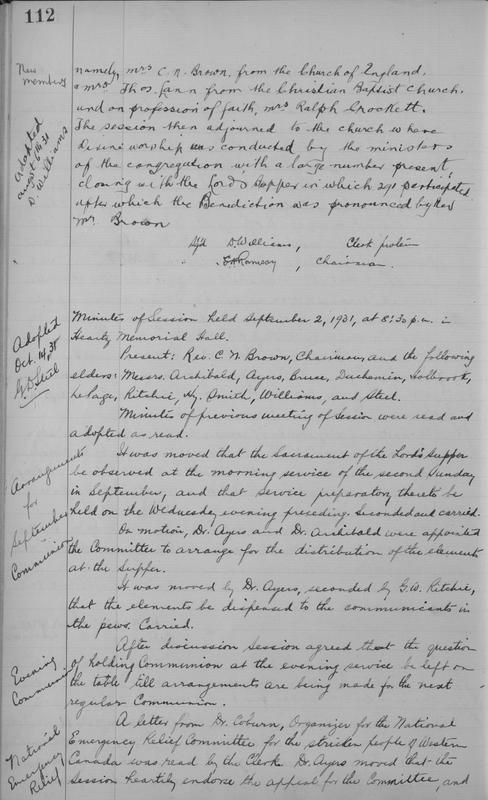 112
New
members
namely, Mrs C. N. Brown, from the Church of England,
Mrs Thos. from the Christian Baptist Church,
and on profession of faith, Mrs Ralph Crockett.
The session then adjourned to the church where
Divine worship was conducted by the ministers
of the congregation, with a large number present,
closing with the Lord's Supper in which 291 participated
after which the Benediction was pronounced by Rev
Mr Brown
Adopted
August 6th 31
D. Williams
Sgd D. Williams, Clerk protem
Ramsay, Chairman.
Adopted
Oct. 14, 31
G.D. Steel
Minutes of Session held September 2, 1931, at 8:30 p.m. in
Heartz Memorial Hall.
Present: Rev. C. N. Brown, Chairman, and the following
elders: Messrs. Archibald, Ayers, Bruce, Duchemin, Holbrook,
LePage, Ritchie, Hy. Smith, Williams, and Steel.
Minutes of previous meeting of Session were read and
adopted as read.
Arrangements
for
September
Communion
It was moved that the Sacrament of the Lord's Supper
be observed at the morning service of the second Sunday
in September, and that service preparatory thereto be
held on the Wednesday evening preceding. Seconded and carried.
On motion, Dr. Ayers and Dr. Archibald were appointed
the Committee to arrange for the distribution of the elements
at the Supper.
It was moved by Dr. Ayers, seconded by G.W. Ritchie,
that the elements be dispensed to the communicants in
the pews. Carried.
Evening
Communion
After discussion Session agreed that the question
of holding Communion at the evening service be left on
the table till arrangements are being made for the next
regular Communion.
National
Emergency
Relief
A letter from Dr. Coburn, Organizer for the National
Emergency Relief Committee for the stricken people of Western
Canada was read by the Clerk. Dr. Ayers moved that the
Session heartily endorse the appeal for the Committee, and